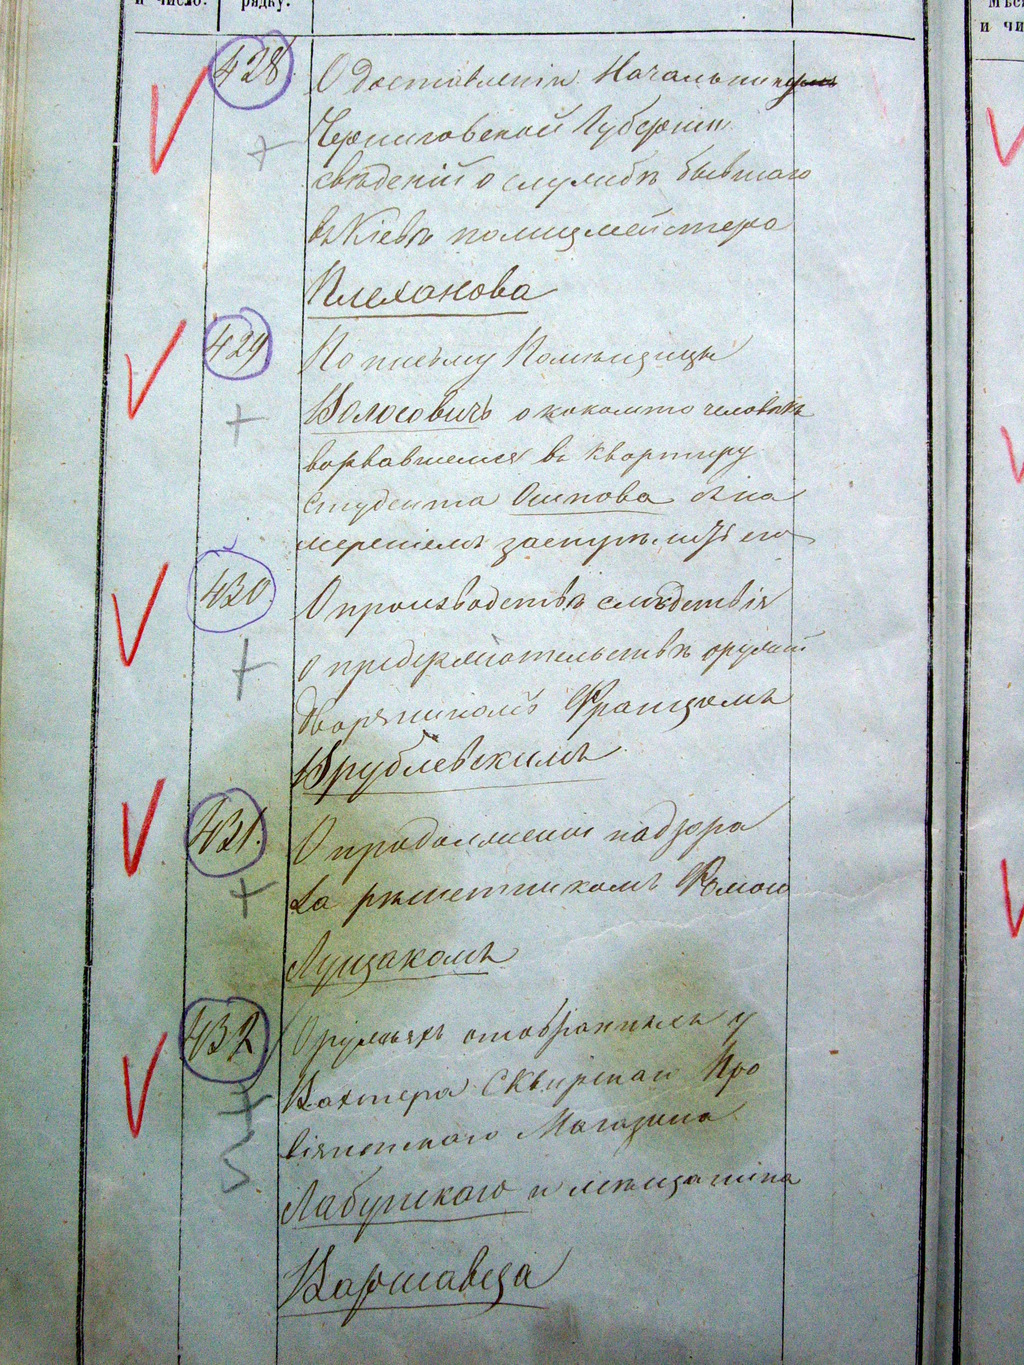 и число.
рядку.
428
О доставленіи Начальникомъ
Черниговской Губерніи
свѣденій о службѣ бывшаго
въ Кіевѣ полицмейстера
Плеханова
429
По письму Помѣщицы
Волосовичъ о какомто человѣкѣ
ворвавшемся въ квартиру
Студента Осипова съ на
мереніемъ
его
430
О производствѣ слѣдствія
о предержательствѣ оружій
дворяниномъ Францемъ
Врублевскимъ
431.
О продолженіи надзора
за рѣшетникомъ Фомою
Лущакомъ
432
О ружьяхъ отобранныхъ у
Вахтера Сквирскаго Про
віянтскаго Магазина
Лабунскаго и мѣщанина
Варшавеца
и чи